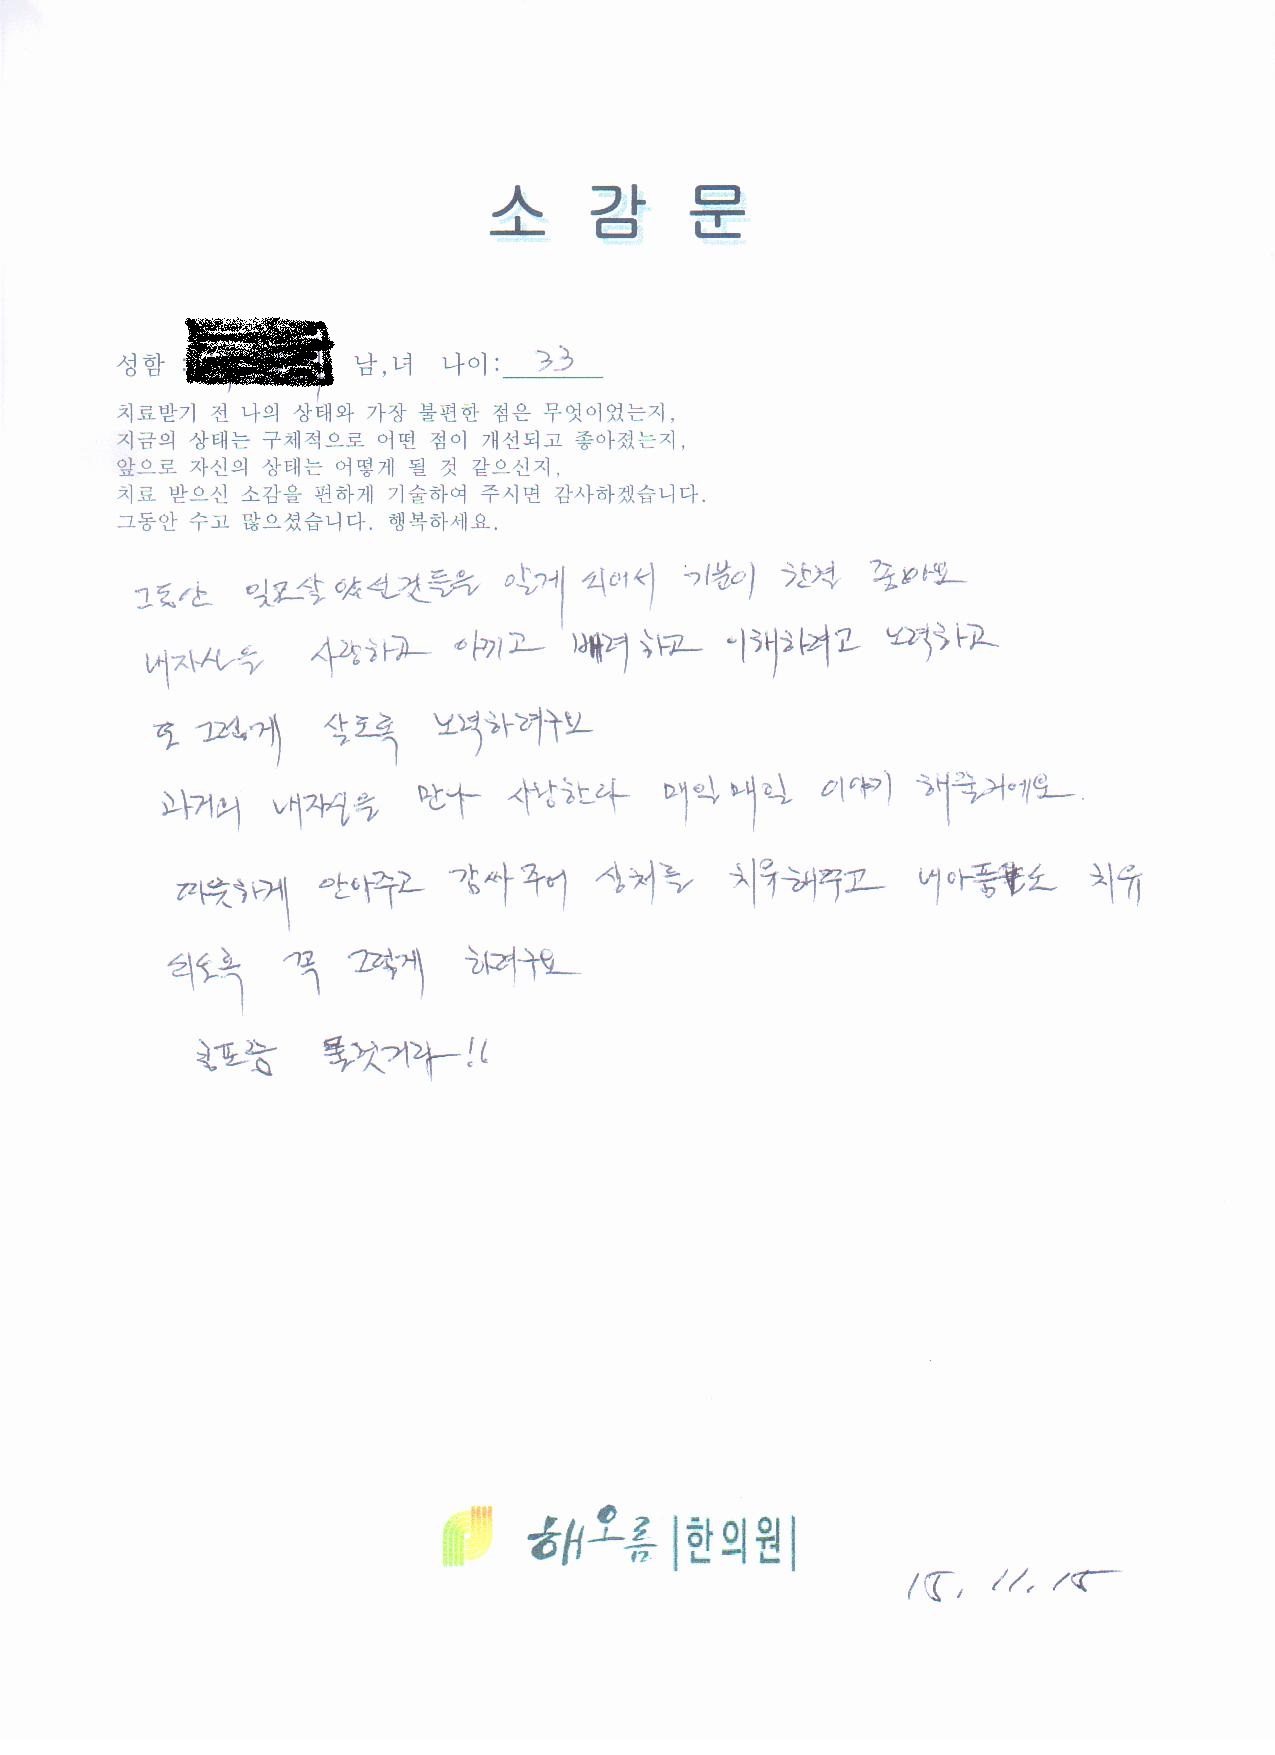 소 감 문
성함 남,녀 나이: 33
치료받기 전 나의 상태와 가장 불편한 점은 무엇이었는지,
지금의 상태는 구체적으로 어떤 점이 개선되고 좋아졌는지,
앞으로 자신의 상태는 어떻게 될 것 같으신지,
치료 받으신 소감을 편하게 기술하여 주시면 감사하겠습니다.
그동안 수고 많으셨습니다. 행복하세요.
그동안 잊고살았던것들을 알게 되어서 기분이 한결 좋아요
내자신을 사랑하고 아끼고 배려하고 이해하려고 노력하고
또 그렇게 살도록 노력하려구요
과거의 내자신을 만나 사랑한다 매일매일 이야기 해줄거에요.
따뜻하게 안아주고 감싸주어 상처를 치유해주고 내아픔도 치유
되도록 꼭 그렇게 하려구요
물럿거라!!
해오름 한의원
15. 11. 15